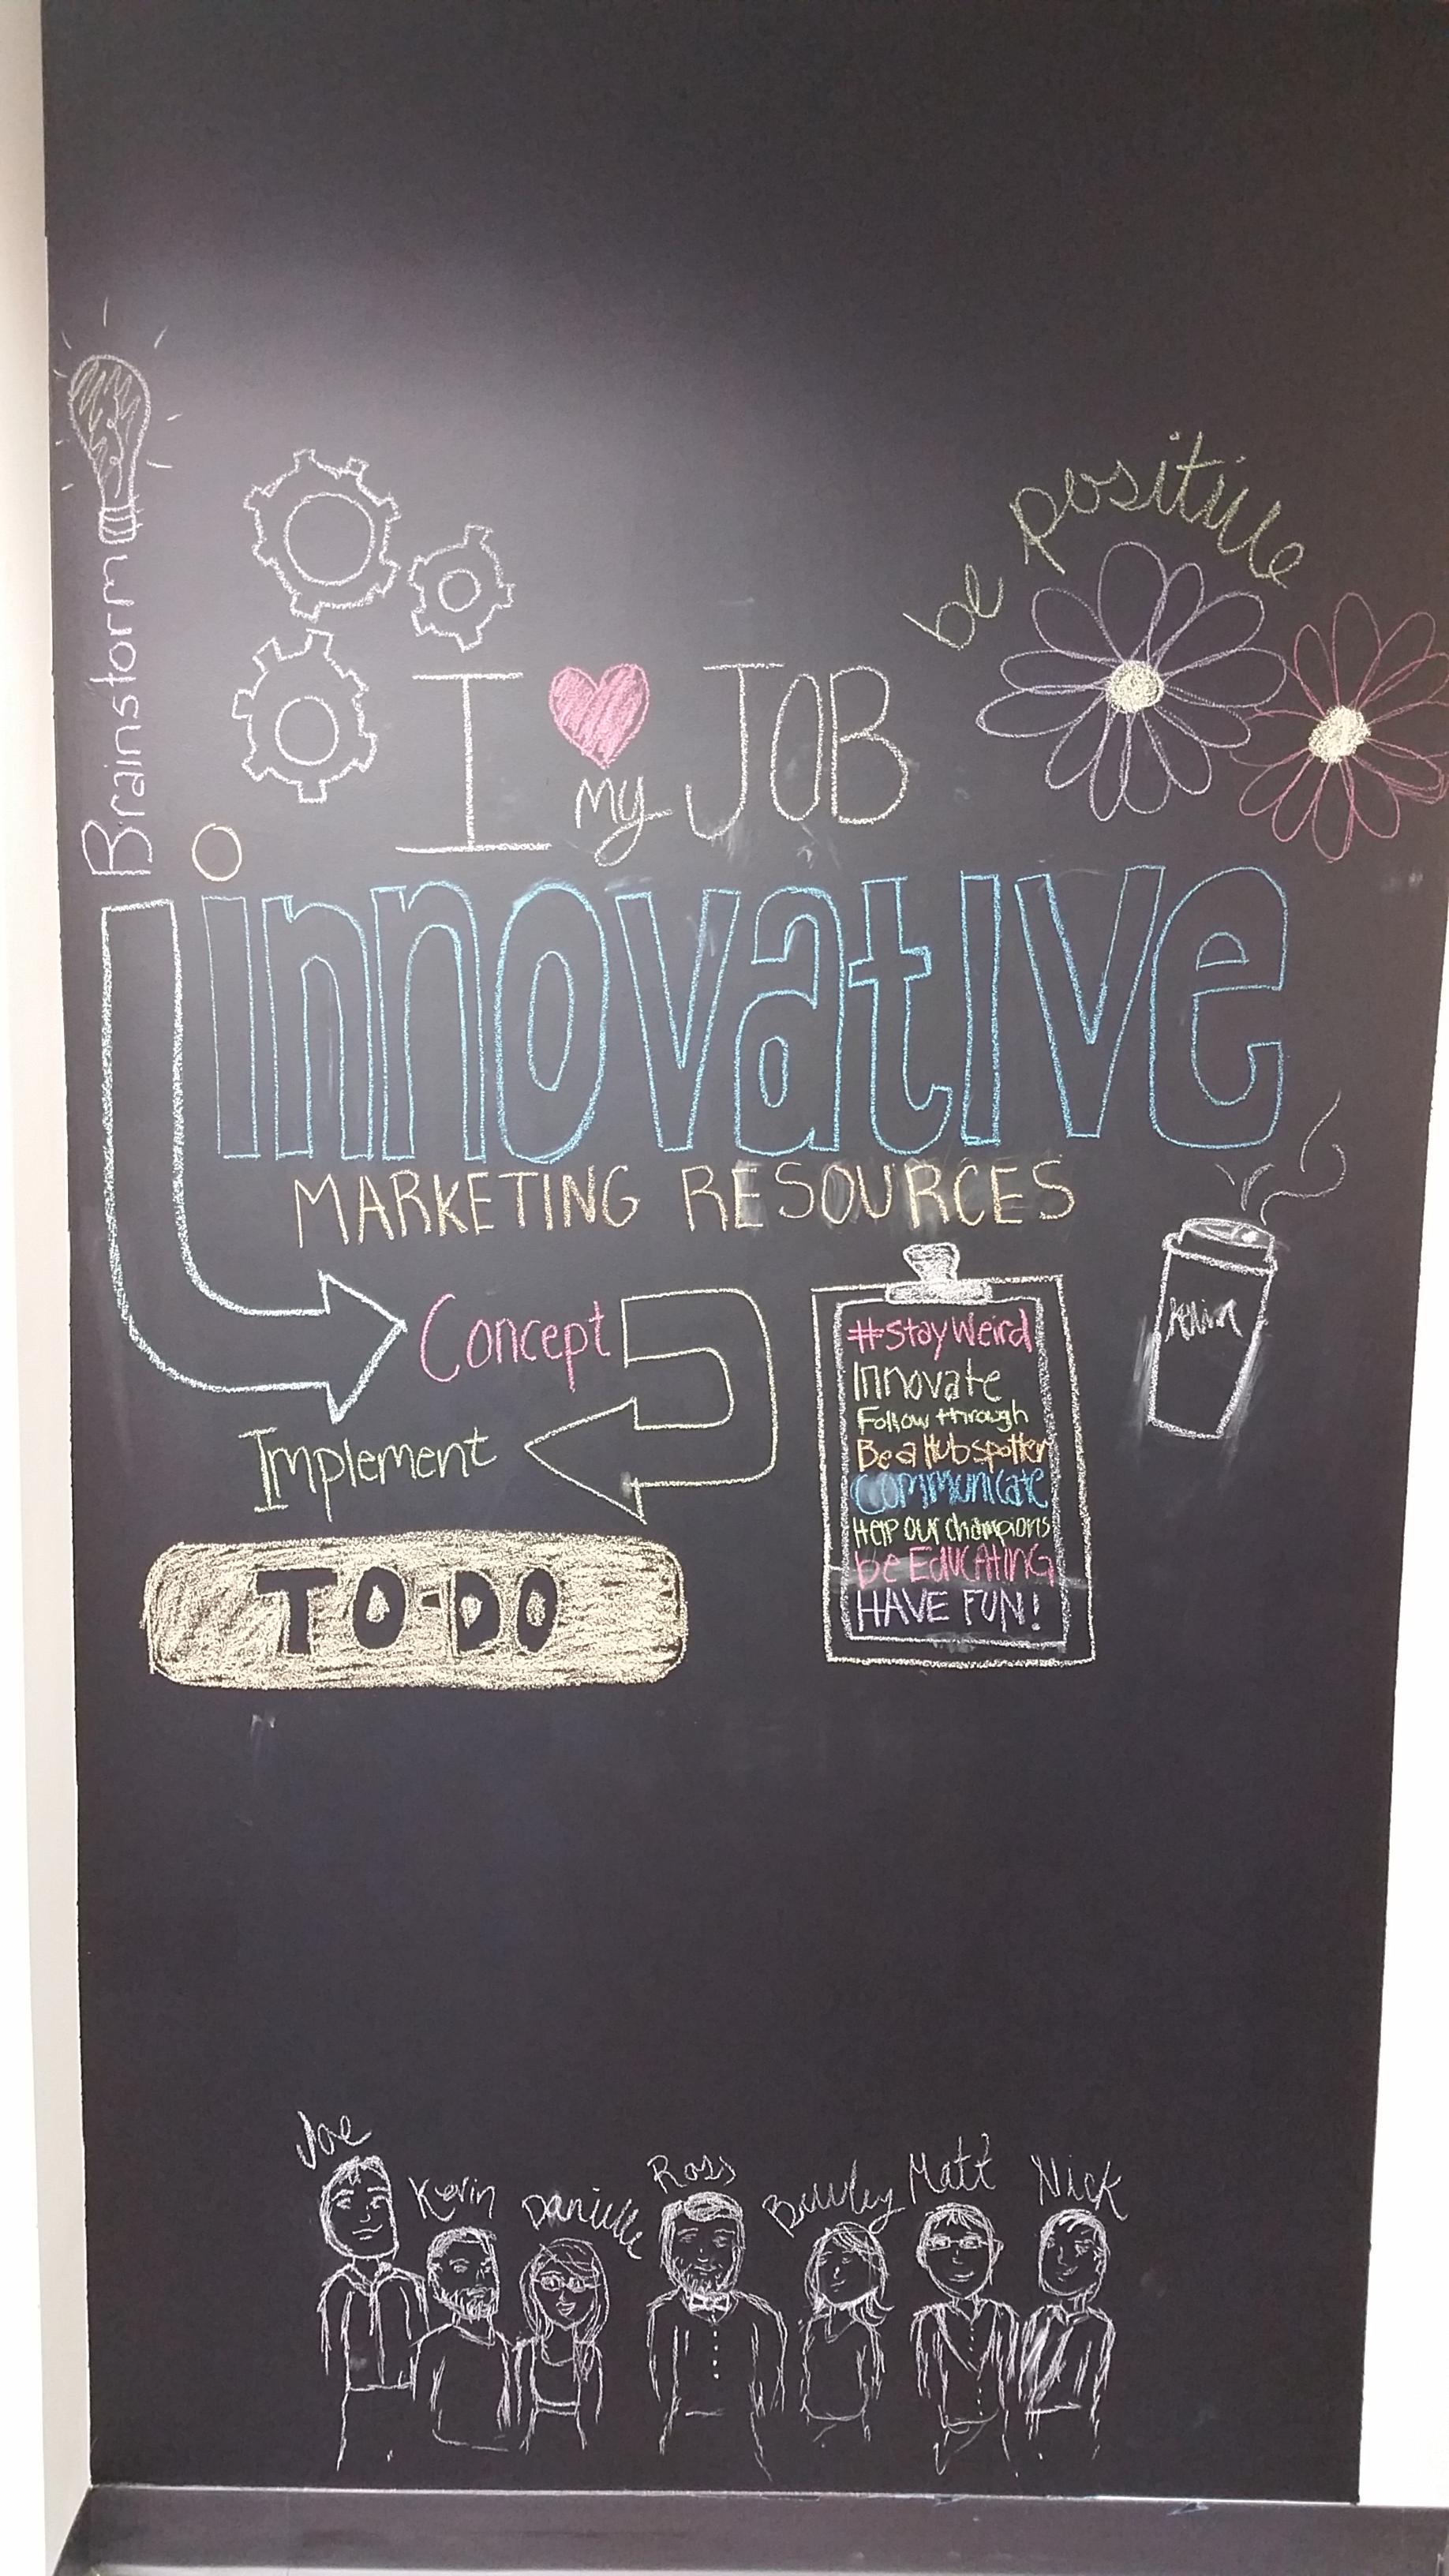 be positive
Brainstorm
I ♥ my JOB
innovative
MARKETING RESOURCES
Concept
Implement
#StayWeird
Innovate
Follow through
Be a Hubspotter
Communicate
Help our champions
be EDUCATING
HAVE FUN!
Kevin
TO-DO
Joe
Kevin
Danielle
Ross
Matt
Nick